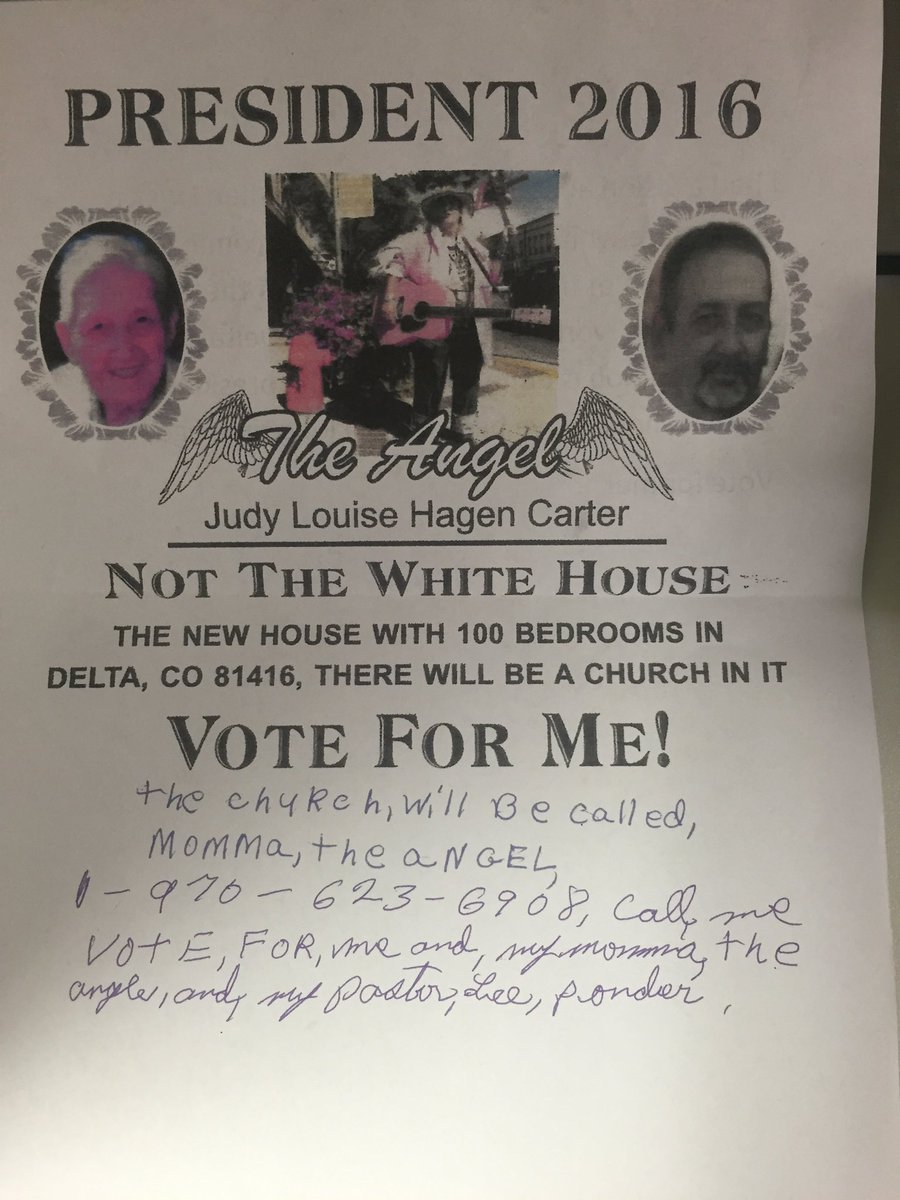 PRESIDENT 2016
The Angel
Judy Louise Hagen Carter
NOT THE WHITE HOUSE
THE NEW HOUSE WITH 100 BEDROOMS IN
DELTA, CO 81416, THERE WILL BE A CHURCH IN IT
VOTE FOR ME!
the chURch, will Be called,
MOMMa, the aNGEL,
1-970-623-6908, Call, me
VOtE, FOR, me and, my momma, the
angle, and, my pastor, Lee, ponder,